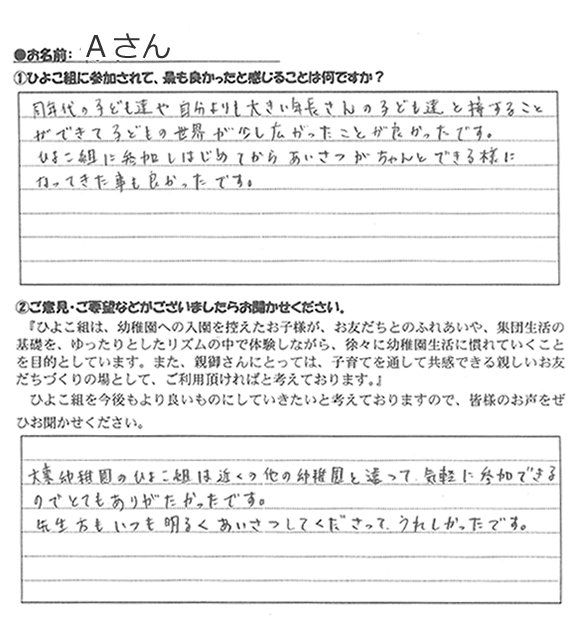 ●お名前: Aさん
①ひよこ組に参加されて、最も良かったと感じることは何ですか?
同年代の子ども達や自分よりも大きい年長さんの子ども達と接すること
ができて子どもの世界が少し広がったことが良かったです。
ひよこ組に参加しはじめてからあいさつがちゃんとできる様に
なってきた事も良かったです。
②ご意見・ご要望などがございましたらお聞かせください。
『ひよこ組は、幼稚園への入園を控えたお子様が、お友だちとのふれあいや、集団生活の
基礎を、ゆったりとしたリズムの中で体験しながら、徐々に幼稚園生活に慣れていくこと
を目的としています。また、親御さんにとっては、子育てを通して共感できる親しいお友
だちづくりの場として、ご利用頂ければと考えております。』
ひよこ組を今後もより良いものにしていきたいと考えておりますので、皆様のお声をぜ
ひお聞かせください。
幼稚園のひよこ組は近くの他の幼稚園と違って、気軽に参加できる
のでとてもありがたかったです。
先生方もいつも明るくあいさつしてくださって、うれしかったです。